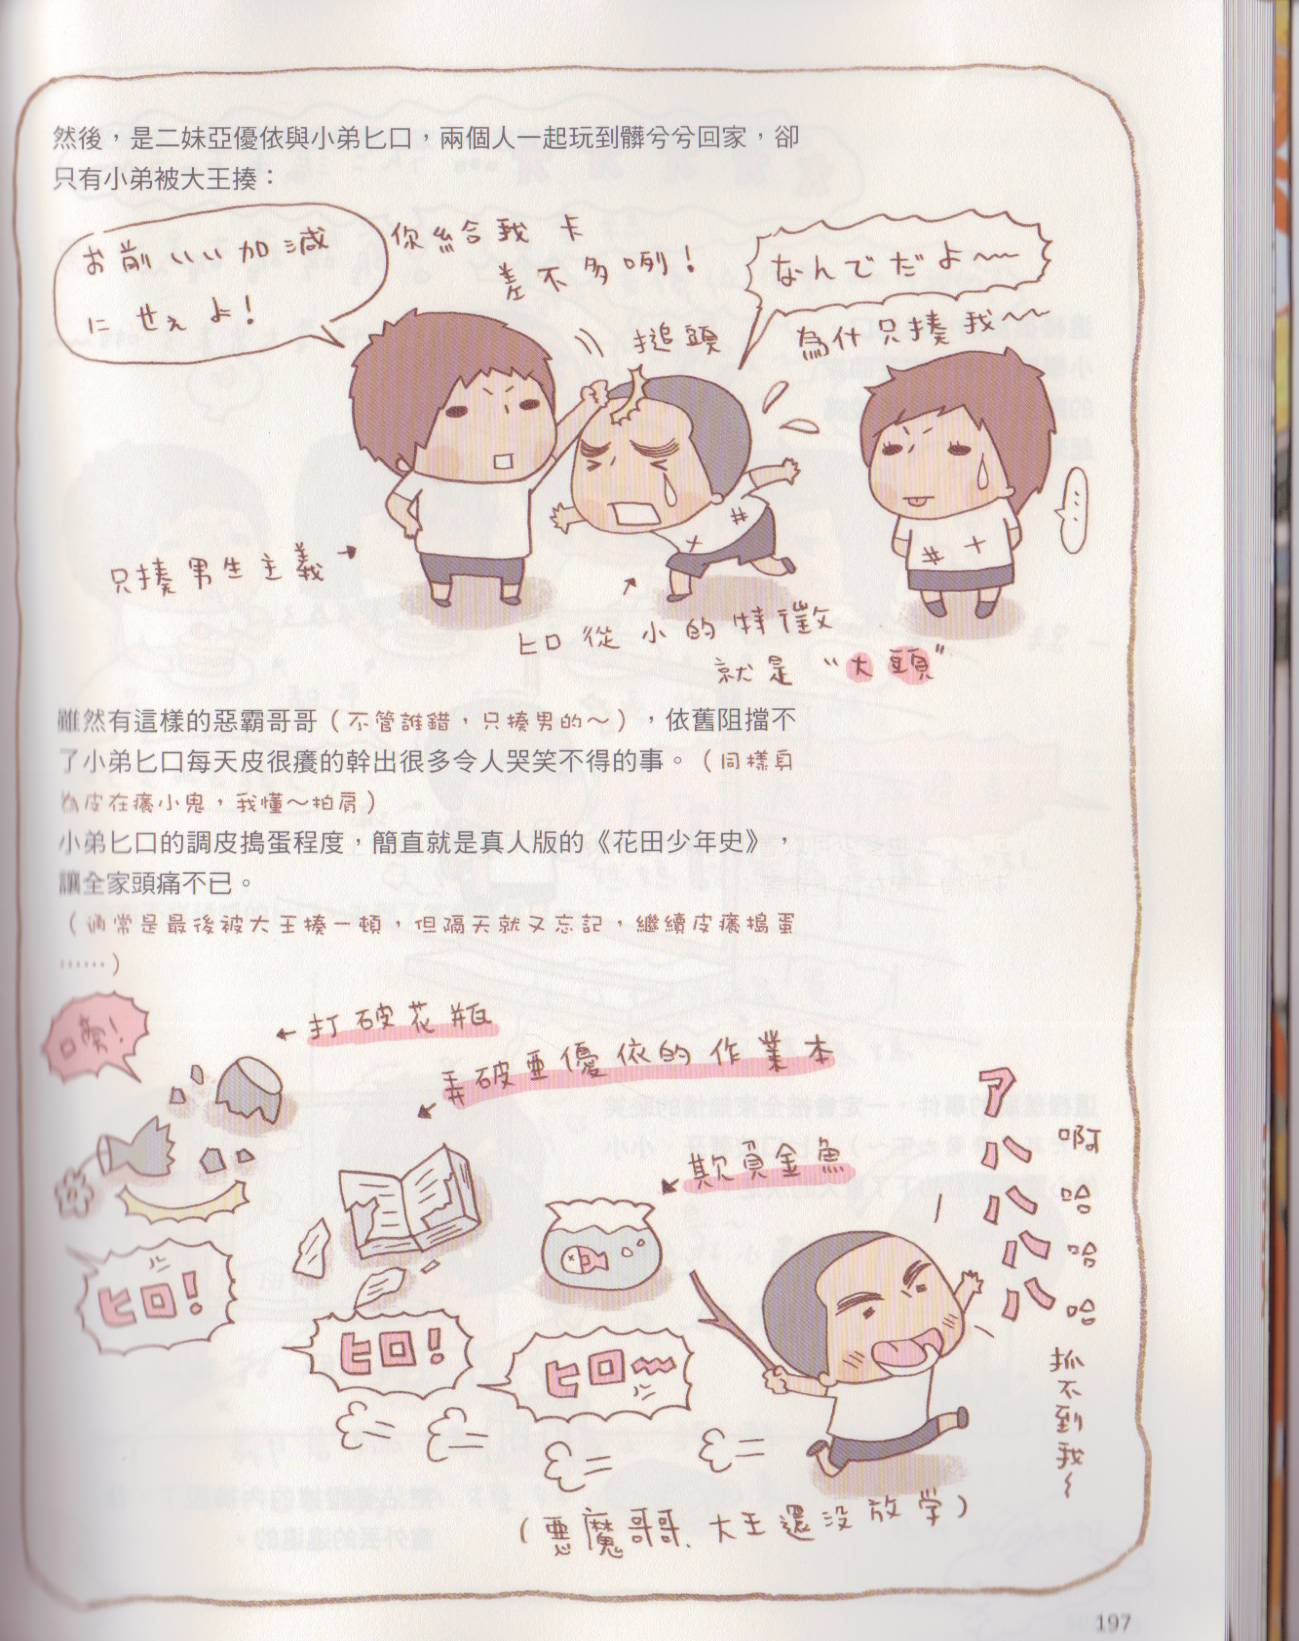 然後，是二妹亞優依與小弟匕口，兩個人一起玩到髒兮兮回家，卻
只有小弟被大王揍：
お前いい加減
にせぇよ！
你給我卡
差不多咧！
搥頭
なんでだよ〜〜
為什只揍我〜〜
⋯⋯
只揍男生主義
ヒロ從小的特徵
就是“大頭”
雖然有這樣的惡霸哥哥（不管誰錯，只揍男的～），依舊阻擋不
了小弟匕口每天皮很癢的幹出很多令人哭笑不得的事。（同樣身
為皮在癢小鬼，我懂～拍肩）
小弟匕口的調皮搗蛋程度，簡直就是真人版的《花田少年史》，
讓全家頭痛不已。
（通常是最後被大王揍一頓，但隔天就又忘記，繼續皮癢搗蛋
⋯⋯）
打破花瓶
弄破亜優依的作業本
欺負金魚
アハハハハ
啊哈哈哈
抓不到我~
ヒロ！
ヒロ！
ヒロ〜
（悪魔哥哥、大王還没放学）
197